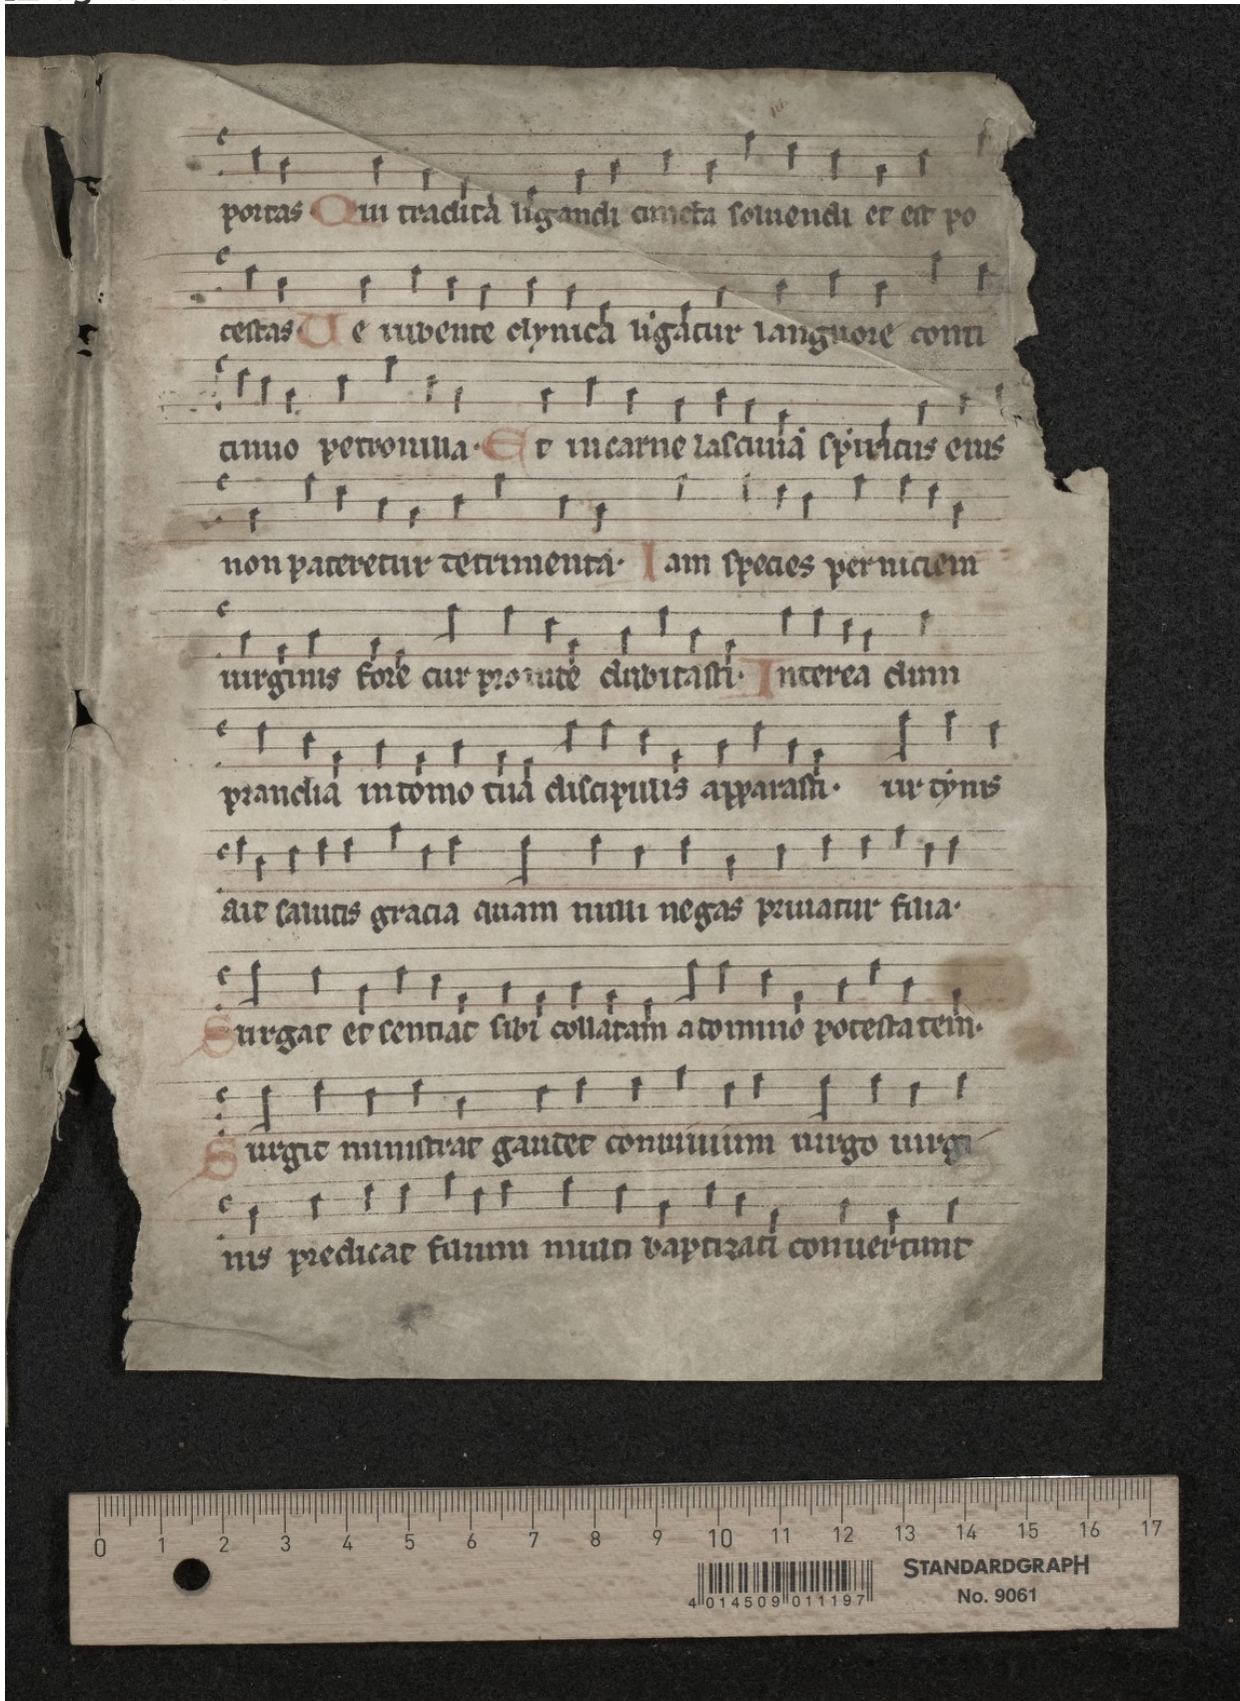 portas Qui tradita ligandi cuncta soluendi et est po
testas Te iubente clynica ligatur languore conti
cinuo petronilla. Et in carne lasciuiā spiritus eius
non pateretur detrimenta. Iam species perniciem
uirginis fore cur pro uite dubitasti. Interea dum
prandia in domo tua discipulis apparasti. ur tynis
ait salutis gracia quam nulli negas priuatur filia.
Surgat et sentiat sibi collatam a domino potestatem.
Surgit ministrat gaudet conuiuium uirgo uirgi
nis predicat filium multi baptizati conuertunt
0 1 2 3 4 5 6 7 8 9 10 11 12 13 14 15 16 17
STANDARDGRAPH
No. 9061
4 014509 011197